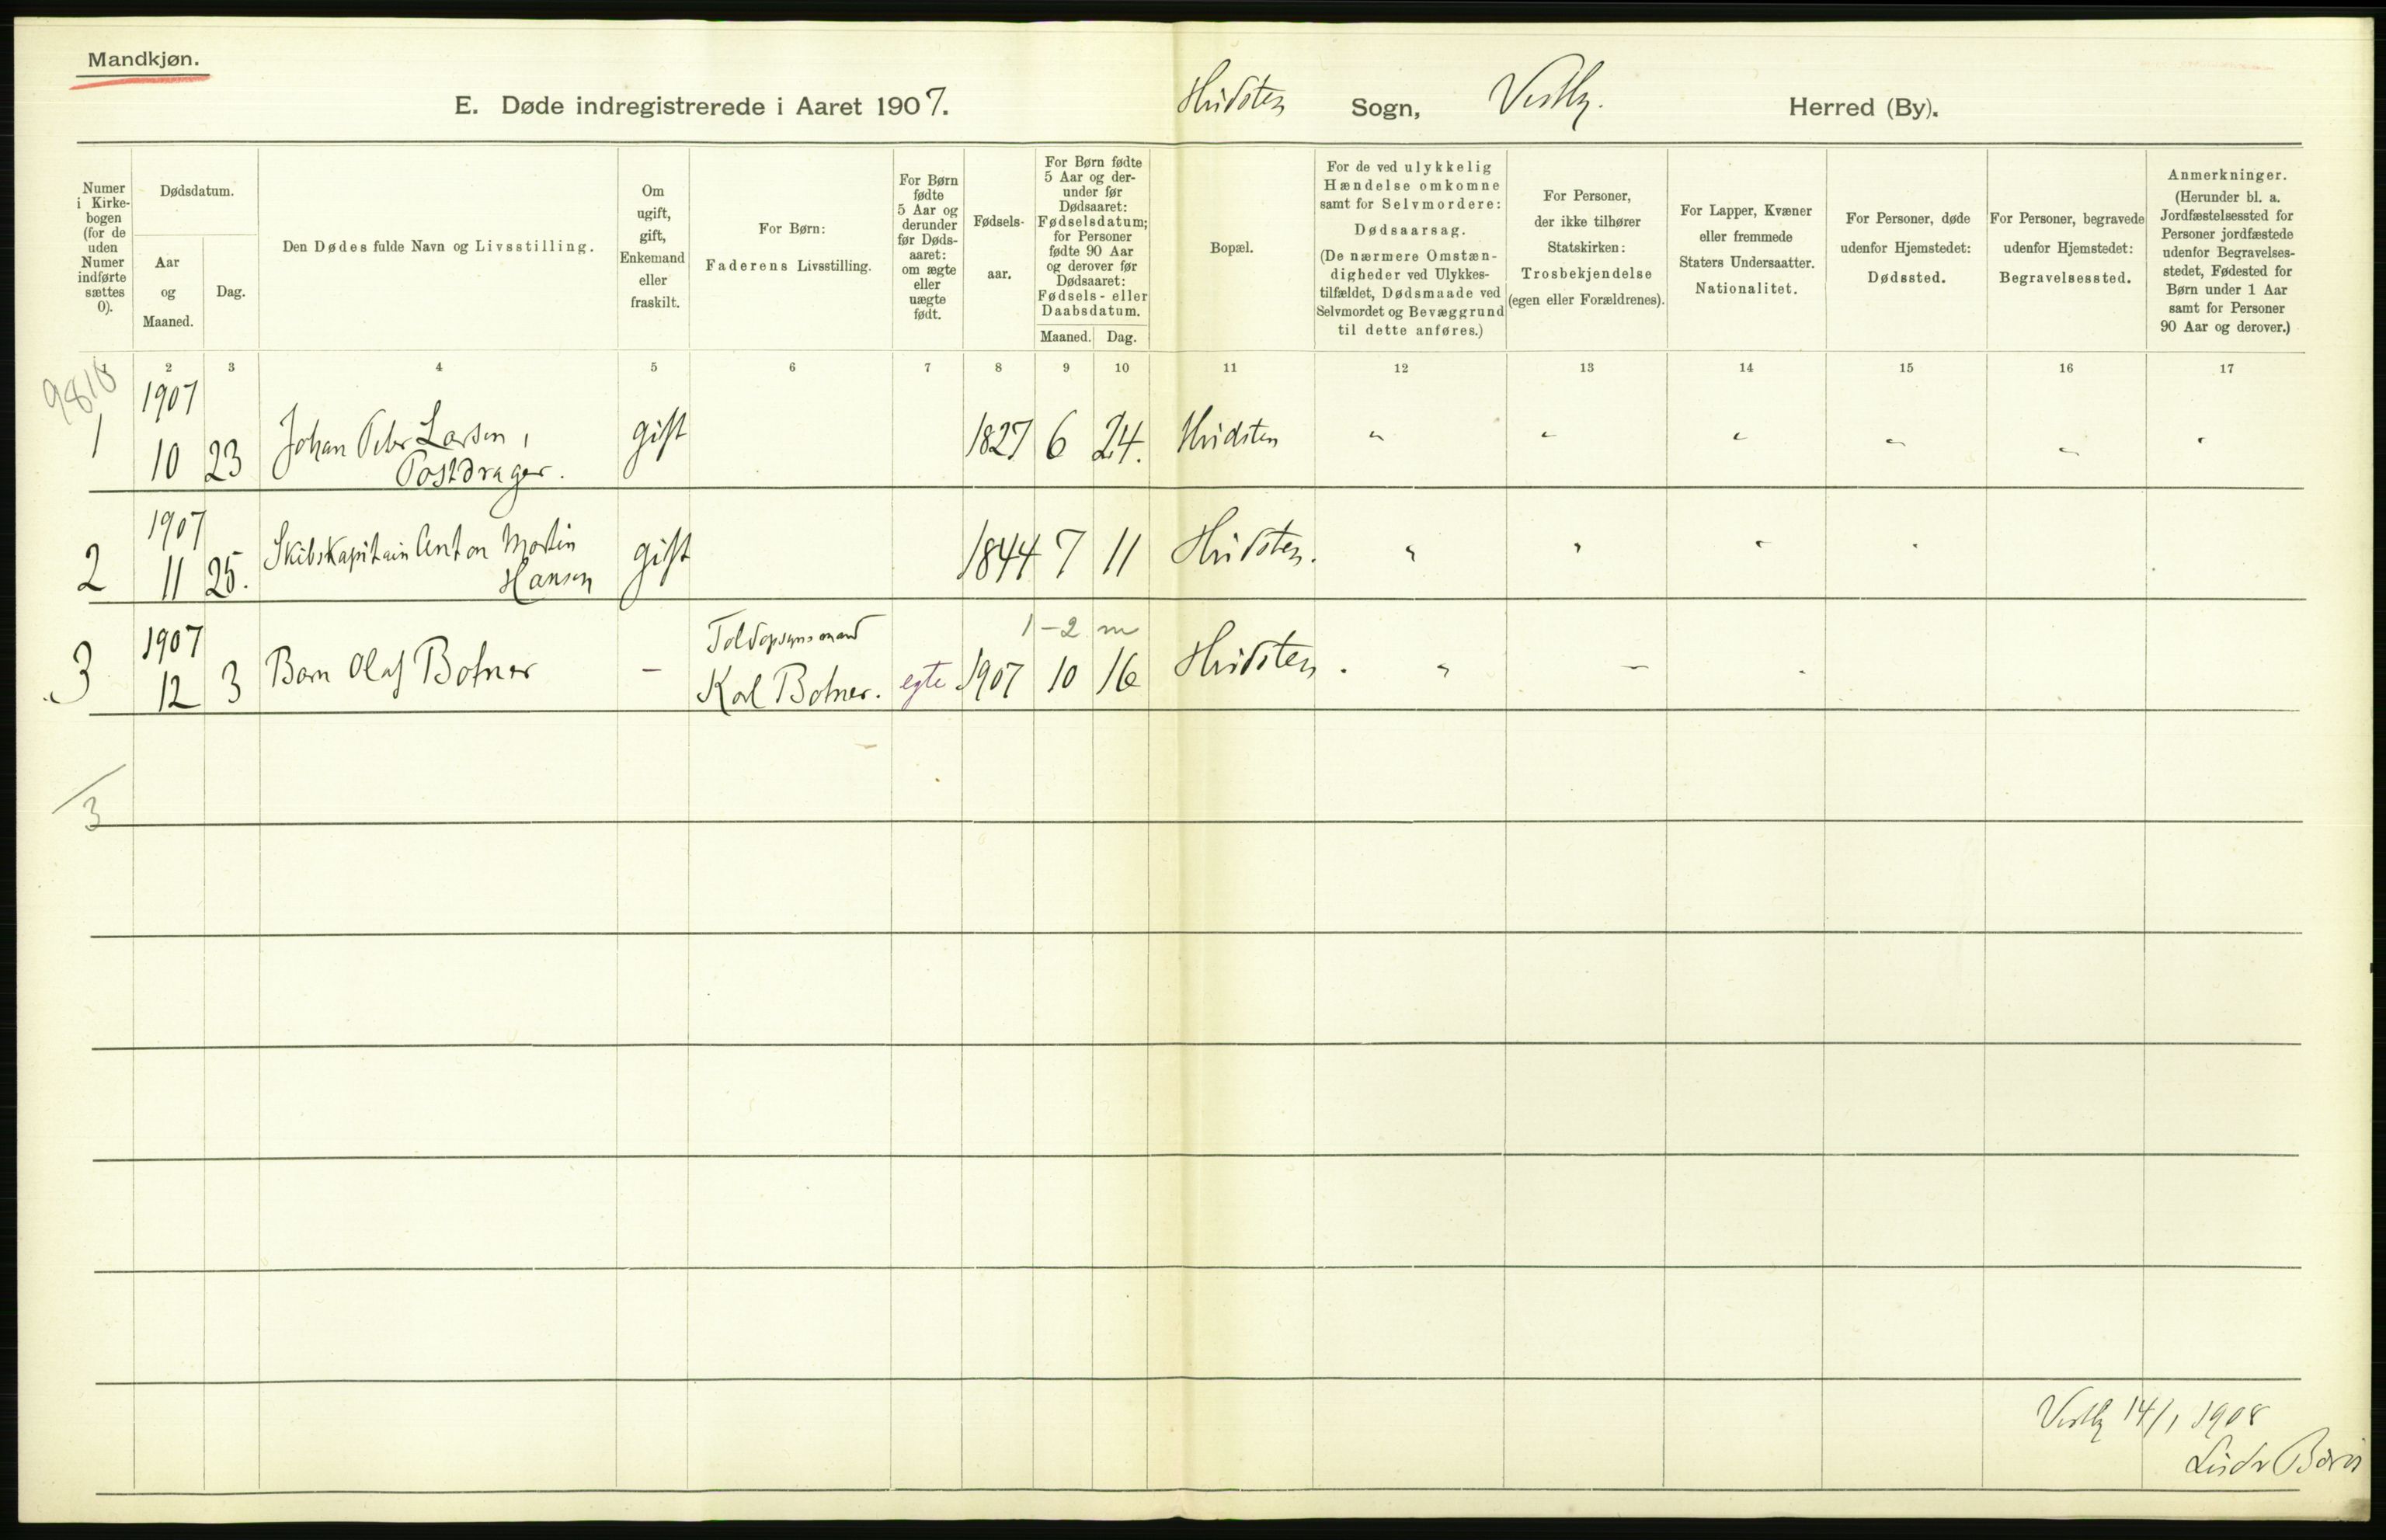 Mandkjøn.
E. Døde indregistrerede i Aaret 1907. Hvidsten Sogn, Vestby. Herred (By).
Numer i Kirke-bogen (for de uden Numer indførte sættes 0).
Dødsdatum.
Aar og Maaned.
Dag.
Den Dødes fulde Navn og Livsstilling.
Om ugift, gift, Enkemand eller fraskilt.
For Børn:
Faderens Livsstilling.
For Børn fødte 5 Aar og derunder før Døds-aaret: om ægte eller uægte født.
Fødsels-aar.
For Børn fødte 5 Aar og der-under før Dødsaaret: Fødselsdatum; for Personer fødte 90 Aar og derover før Dødsaaret: Fødsels- eller Daabsdatum.
Maaned. Dag.
Bopæl.
For de ved ulykkelig Hændelse omkomne samt for Selvmordere:
Dødsaarsag.
(De nærmere Omstæn-digheder ved Ulykkes-tilfældet, Dødsmaade ved Selvmordet og Bevæggrund til dette anføres.)
For Personer, der ikke tilhører Statskirken:
Trosbekjendelse
(egen eller Forældrenes).
For Lapper, Kvæner eller fremmede Staters Undersaatter.
Nationalitet.
For Personer, døde udenfor Hjemstedet:
Dødssted.
For Personer, begravede udenfor Hjemstedet:
Begravelsessted.
Anmerkninger.
(Herunder bl. a. Jordfæstelsessted for Personer jordfæstede udenfor Begravelses-stedet, Fødested for Børn under 1 Aar samt for Personer 90 Aar og derover.)
2 3 4 5 6 7 8 9 10 11 12 13 14 15 16 17
9818
1907
1 10 23 Johan Peter Larsen, gift 1827 6 24. Hvidsten " " " " " "
Postdrager.
1907
2 11 25. Skibskapitain Anton Martin gift 1844 7 11 Hvidsten. " " " "
Hansen
1907 Toldopsynsmand 1-2 m
3 12 3 Barn Olaf Botner - Karl Botner. egte 1907 10 16 Hvidsten. " -
3
Vestby 14/1 1908